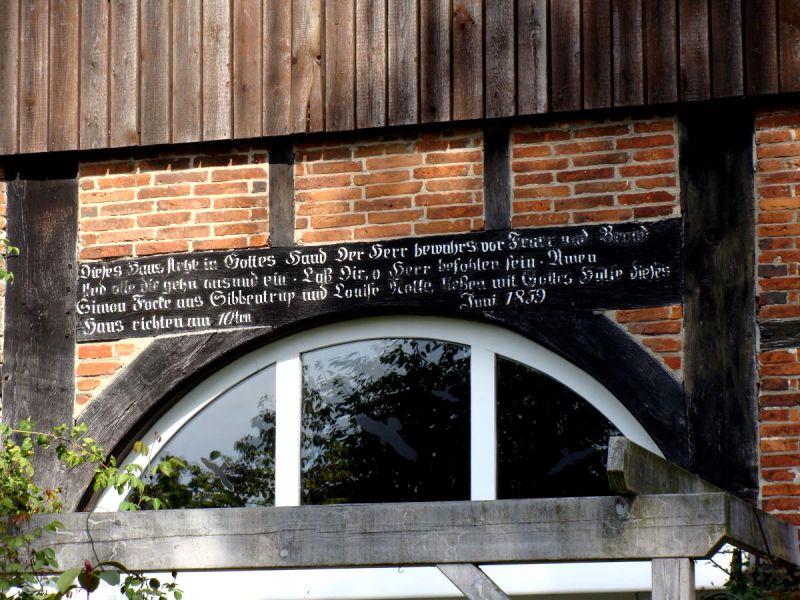 Dieses Haus steht in Gottes Hand Der Herr bewahrs vor Feuer und Brand
Und alle die gehn aus und ein. Laß Dir, o Herr befohlen sein. Amen
Simon Focke aus Sibbentrup und Louise Nolte ließen mit Gottes Hülfe dieses
Haus richten am 10ten Juni 1859